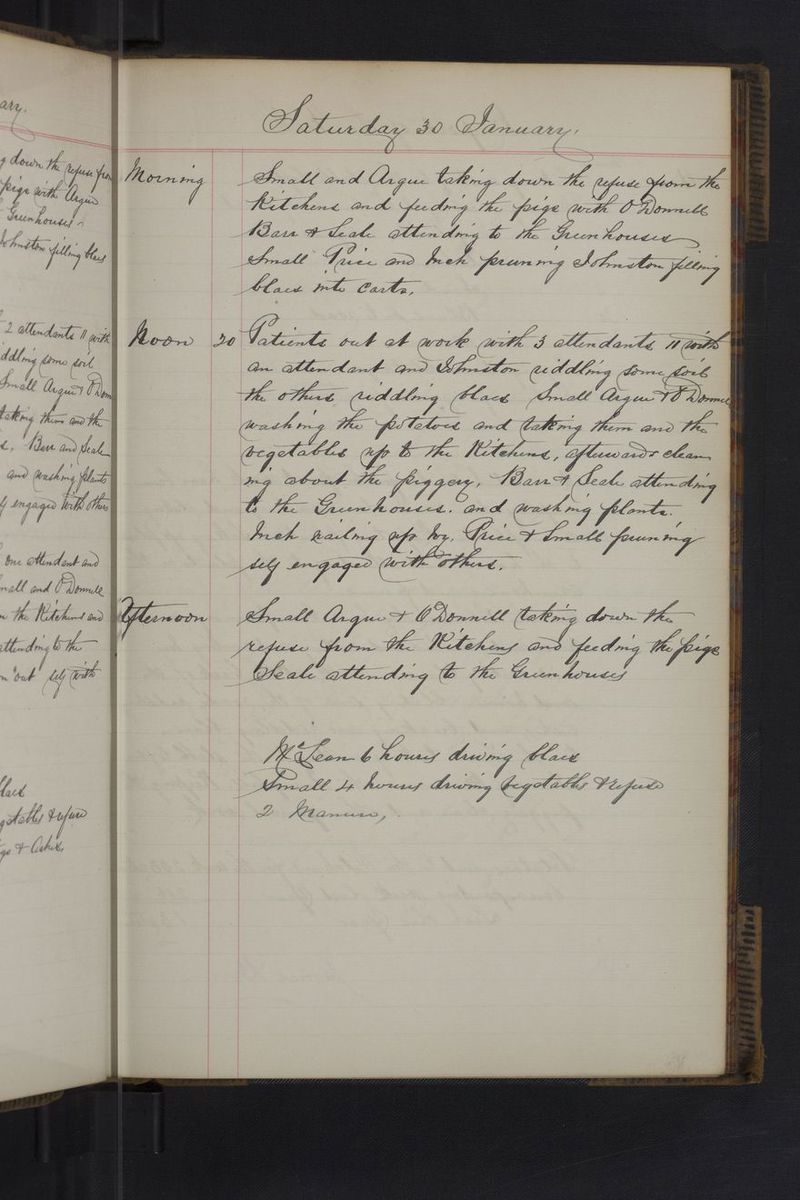 ary.
g down the refuse from
pigs with Argue
Greenhouses
Johnston filling blaes
2 attendants 11 with
iddling some soil
Small Argue & O'Donn
taking them and the
s. Barr and Seale
and washing plants
ly engaged with others
one attendant and
mall and O'Donnell
m the Kitchens and
attending to the
"out" self with
blaes
getables & refuse
& Ashes
Saturday 30 January.
Morning Small and Argue taking down the refuse from the
Kitchens and feeding the pigs with O'Donnell
Barr & Seale attending to the Greenhouses
Small Price and Inch pruning Johnston filling
blaes into carts.
Noon 20 Patients out at work with 3 attendants 11 with
an attendant and Johnston riddling some soil
the others riddling blaes Small Argue & O'Donnell
washing the potatoes and taking them and the
vegetables up to the Kitchens, afterwards clean
ing about the piggery. Barr & Seale attending
to the Greenhouses. and washing plants.
Inch nailing up Ivy. Price & Small pruning
self engaged with others.
Afternoon Small Argue & O'Donnell taking down the
refuse from the Kitchens and feeding the pigs
Seale attending to the Greenhouses
McLean 6 hours driving blaes
Small 4 hours driving vegetables & refuse
2 Manure,